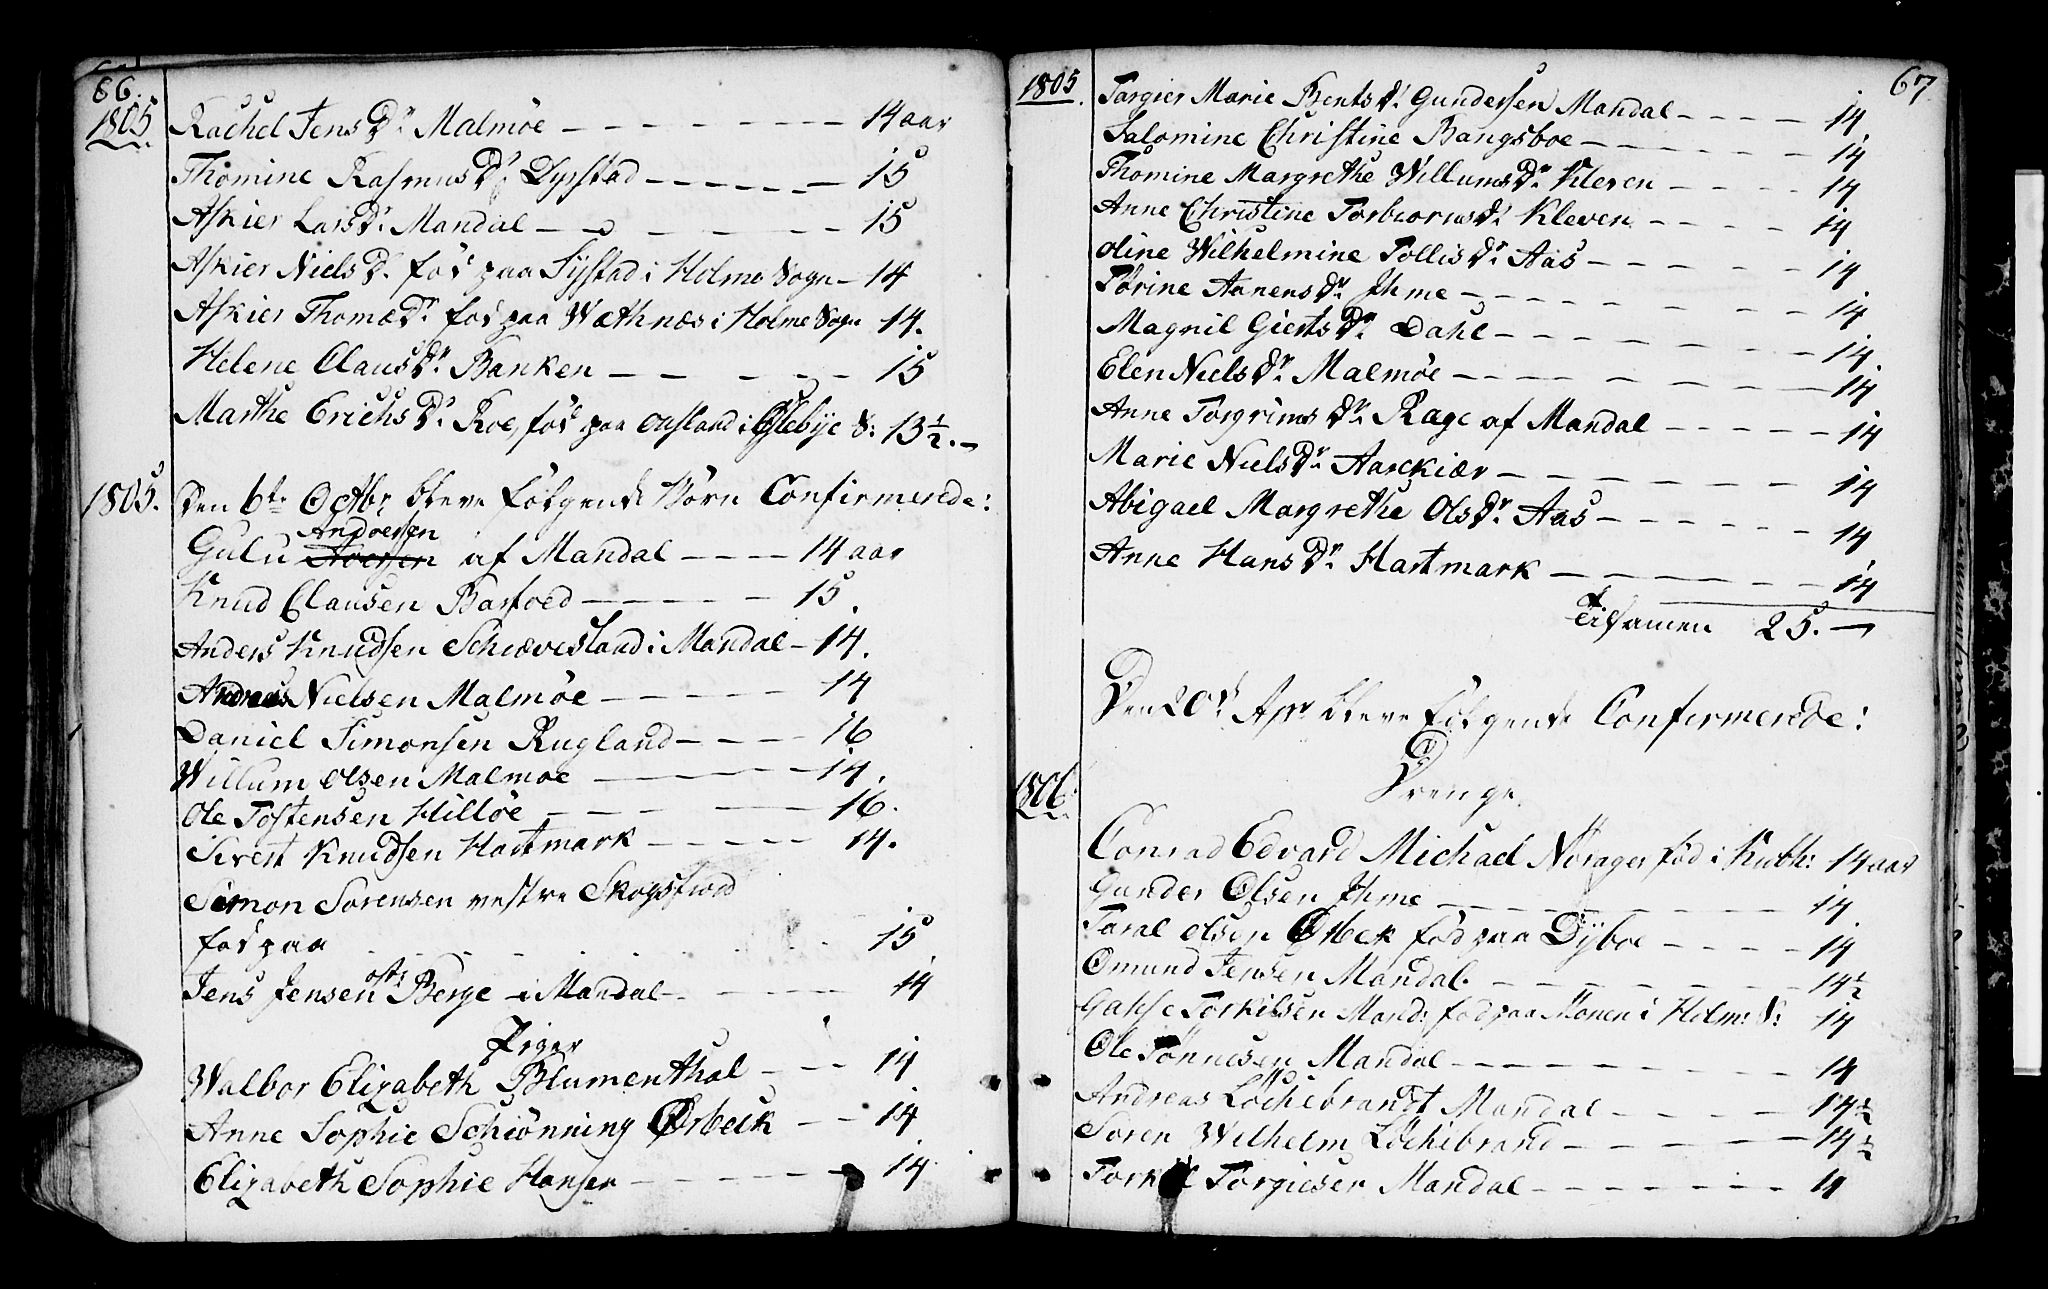 66.
1805
Rachel Jens Dr. Malmøe 14 aar
Thomine Rasmus Dr. Dyrstad 15
Askier Lars Dr. Mandal 15
Askier Niels Dr. fød paa Systad i Holme Sogn 14
Askier Thomæ Dr. fød paa Wæthnæs i Holme Sogn 14.
Helene Claus Dr. Banken 15
Marthe Erichs Dr. Roe, fød paa i Øslebye S: 13 1/2.
1805. Den 6te Octbr bleve følgende Børn Confirmerede:
Andoersen
Gulu Aoersen af Mandal 14 aar
Knud Clausen Barfoed 15.
Anders Knudsen Schiævesland i Mandal 14.
Andreas Nielsen Malmøe 14
Daniel Simonsen Rugland 16
Willum Olsen Malmøe 14.
Ole Tostensen Hilløe 16.
Sivert Knudsen Hartmark 14.
Simon Sorensen vestre Skogsfiord
fød paa 15
Jens Jensen Berge i Mandal 14
Piger
Walbor Elizabeth Blumenthal 14
Anne Sophie Schiønning Ørbeck 14
Elizabeth Sophie Hansen 14.
67
1805.
Torgier Marie Bents Dr. Gundersen Mandal 14
Salomine Christine Bangsboe 14
Thomine Margrethe Willums Dr. Kleven 14
Anne Christine Torbiorns Dr. Kleven 14
Oline Wilhelmine Tollis Dr. Aas 14
Tørine Aanens Dr. Ihme 14
Magnil Gierts Dr. Dahl 14.
Elen Niels Dr. Malmøe 14
Anne Torgrims Dr. Rage af Mandal 14
Marie Niels Dr. Aaeckiær 14
Abigael Margrethe Ols Dr. Aas 14
Anne Hans Dr. Hartmark 14
Tilsamen 25.
Den 20de Apr bleve følgende Confirmerede:
Drenge
1806.
Conrad Edvard Michael Norager fød i Kubh: 14 aar
Gunder Olsen Ihme 14
Taral Olsen Ørbek fød paa Dyboe 14
Omund Jensen Mandal. 14 1/2
Torkilsen Mand: fød paa Monen i Holm: S: 14
Ole Tønnesen Mandal 14
Andreas Løchebrandt Mandal 14 1/2
Soren Wilhelm Løchebrand 14 1/2
Torkel Torgiesen Mandal 14